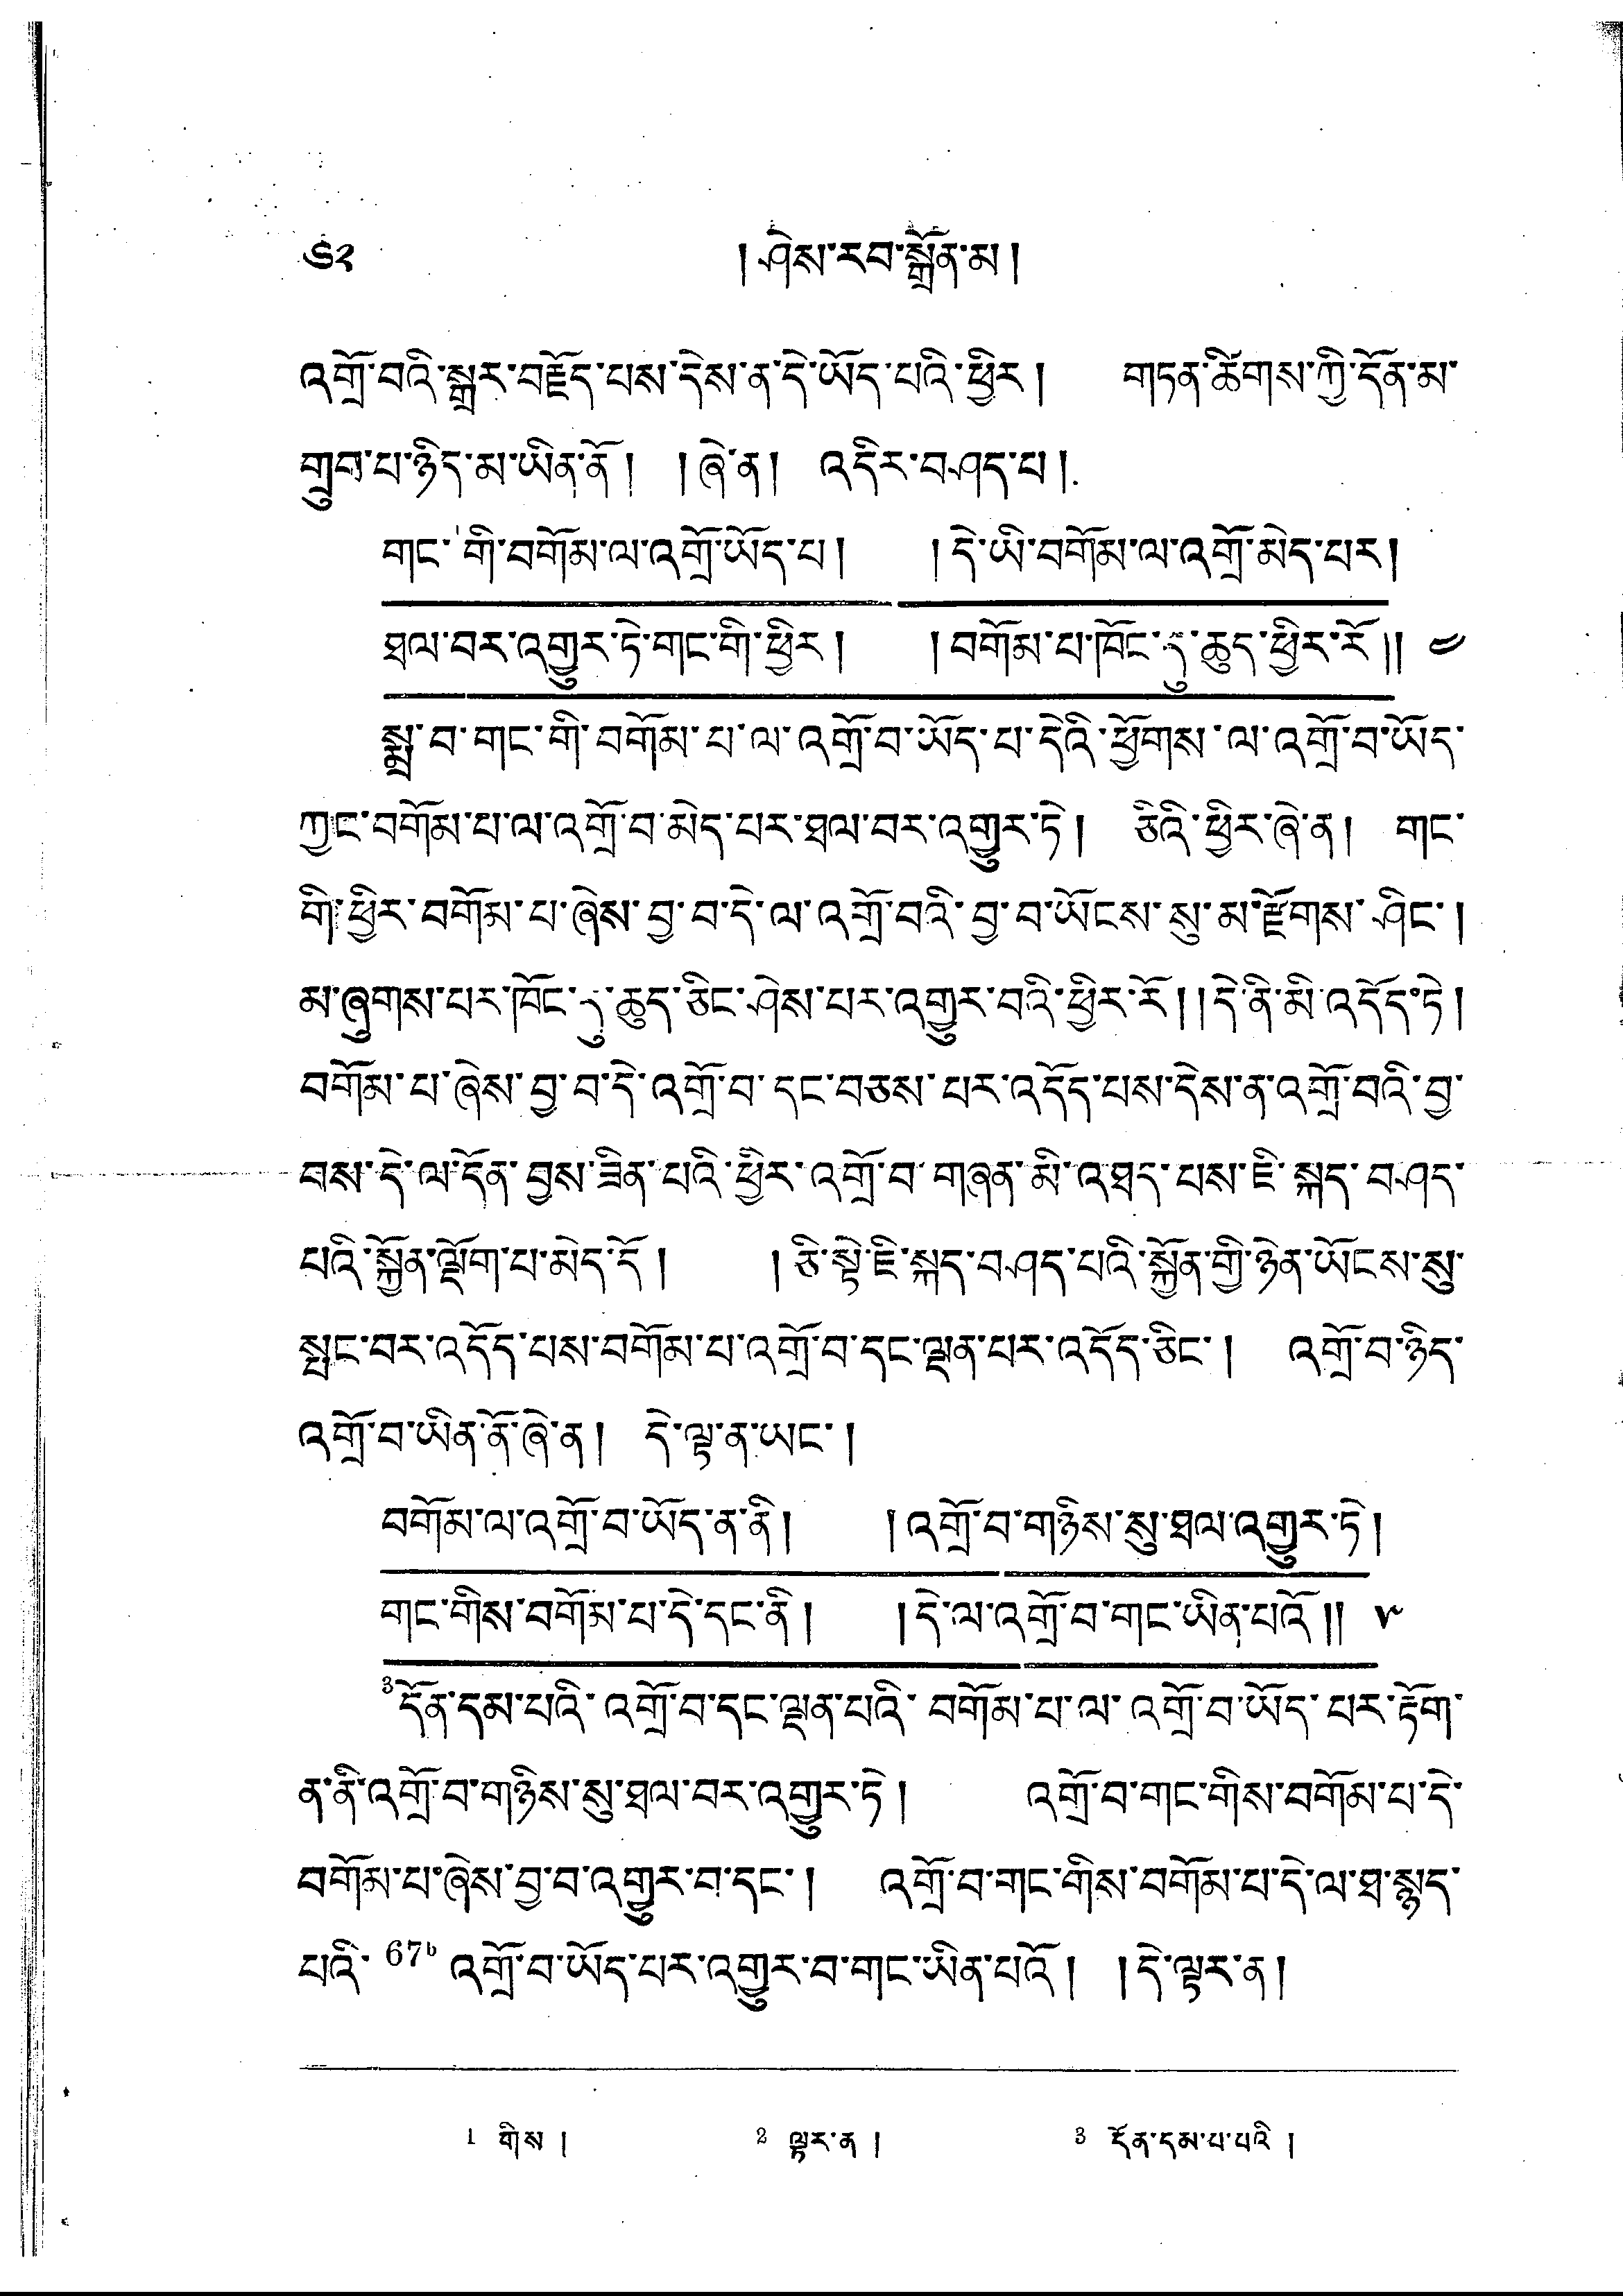 ༦༢ །ཤེས་རབ་སྒྲོན་མ།
འགྲོ་བའི་སྒྲར་བརྗོད་པས་དེས་ན་དེ་ཡོད་པའི་ཕྱིར། གཏན་ཚིགས་ཀྱི་དོན་མ་
གྲུབ་པ་ཉིད་མ་ཡིན་ནོ། །ཞེ་ན། འདིར་བཤད་པ།
གང་ 1གི་བགོམ་ལ་འགྲོ་ཡོད་པ། །དེ་ཡི་བགོམ་ལ་འགྲོ་མེད་པར།
ཐལ་བར་འགྱུར་ཏེ་གང་གི་ཕྱིར། །བགོམ་པ་ཁོང་དུ་ཆུད་ཕྱིར་རོ།། ༤
སྨྲ་བ་གང་གི་བགོམ་པ་ལ་འགྲོ་བ་ཡོད་པ་དེའི་ཕྱོགས་ལ་འགྲོ་བ་ཡོད་
ཀྱང་བགོམ་པ་ལ་འགྲོ་བ་མེད་པར་ཐལ་བར་འགྱུར་ཏེ། ཅིའི་ཕྱིར་ཞེ་ན། གང་
གི་ཕྱིར་བགོམ་པ་ཞེས་བྱ་བ་དེ་ལ་འགྲོ་བའི་བྱ་བ་ཡོངས་སུ་མ་རྫོགས་ཤིང་།
མ་ཞུགས་པར་ཁོང་དུ་ཆུད་ཅིང་ཤེས་པར་འགྱུར་བའི་ཕྱིར་རོ།།དེ་ནི་མི་འདོད་ཏེ།
བགོམ་པ་ཞེས་བྱ་བ་དེ་འགྲོ་བ་དང་བཅས་པར་འདོད་པས་དེས་ན་འགྲོ་བའི་བྱ་
བས་དེ་ལ་དོན་བྱས་ཟིན་པའི་ཕྱིར་འགྲོ་བ་གཞན་མི་འཐད་པས་ཇི་སྐད་བཤད་
པའི་སྐྱོན་ལྡོག་པ་མེད་དོ། །ཅི་སྟེ་ཇི་སྐད་བཤད་པའི་སྐྱོན་གྱི་ཉེན་ཡོངས་སུ་
སྤང་བར་འདོད་པས་བགོམ་པ་འགྲོ་བ་དང་ལྡན་པར་འདོད་ཅིང་། འགྲོ་བ་ཉིད་
འགྲོ་བ་ཡིན་ནོ་ཞེ་ན། དེ་ལྟ་ན་ཡང་།
བགོམ་ལ་འགྲོ་བ་ཡོད་ན་ནི། །འགྲོ་བ་གཉིས་སུ་ཐལ་འགྱུར་ཏེ།
གང་གིས་བགོམ་པ་དེ་དང་ནི། །དེ་ལ་འགྲོ་བ་གང་ཡིན་པའོ།། ༥
3དོན་དམ་པའི་འགྲོ་བ་དང་ལྡན་པའི་བགོམ་པ་ལ་འགྲོ་བ་ཡོད་པར་རྟོག་
ན་ནི་འགྲོ་བ་གཉིས་སུ་ཐལ་བར་འགྱུར་ཏེ། འགྲོ་བ་གང་གིས་བགོམ་པ་དེ་
བགོམ་པ་ཞེས་བྱ་བ་འགྱུར་བ་དང་། འགྲོ་བ་གང་གིས་བགོམ་པ་དེ་ལ་ཐ་སྙད་
པའི་ 67b འགྲོ་བ་ཡོད་པར་འགྱུར་བ་གང་ཡིན་པའོ། །དེ་ལྟར་ན།
1 གིས། 2 ལྟར་ན། 3 དོན་དམ་པ་པའི།